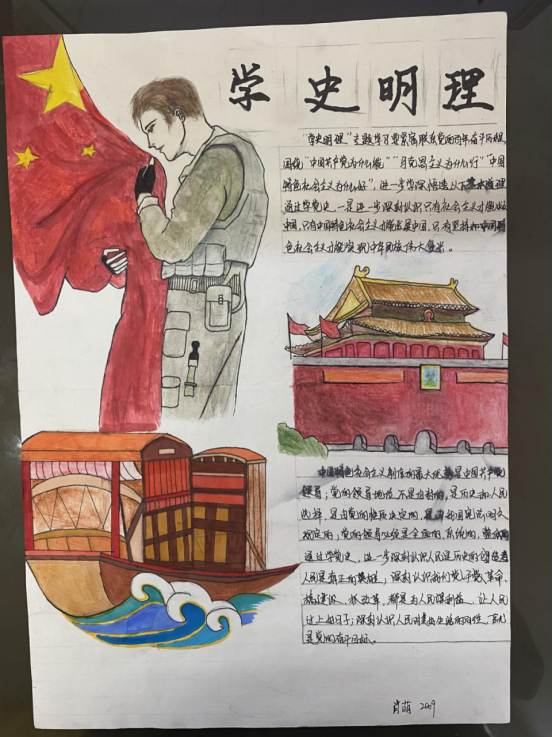 学史明理
"学史明理"主题学习要紧密联系党的百年奋斗历程,
围绕"中国共产党为什么能""马克思主义为什么行""中国
特色社会主义为什么好",进一步学深悟透以下基本道理
通过学党史,一是进一步深刻认识只有社会主义才能救
中国,只有中国特色社会主义才能发展中国,只有坚持和中国特
色社会主义才能实现中华民族伟大复兴。
中国特色社会主义制度的最大优势是中国共产党
领导;党的领导地位不是自封的,是历史和人民
选择,是由党的性质决定的,是由我国宪法明文
规定的;党的领导必须是全面的、系统的、整体的
通过学党史,进一步深刻认识人民是历史的创造者
人民是真正的英雄;深刻认识我们党干革命、
搞建设、抓改革,都是为人民谋利益,让人民
过上好日子;深刻认识人民对美好生活的向往,
是党的奋斗目标。
肖萌 2009